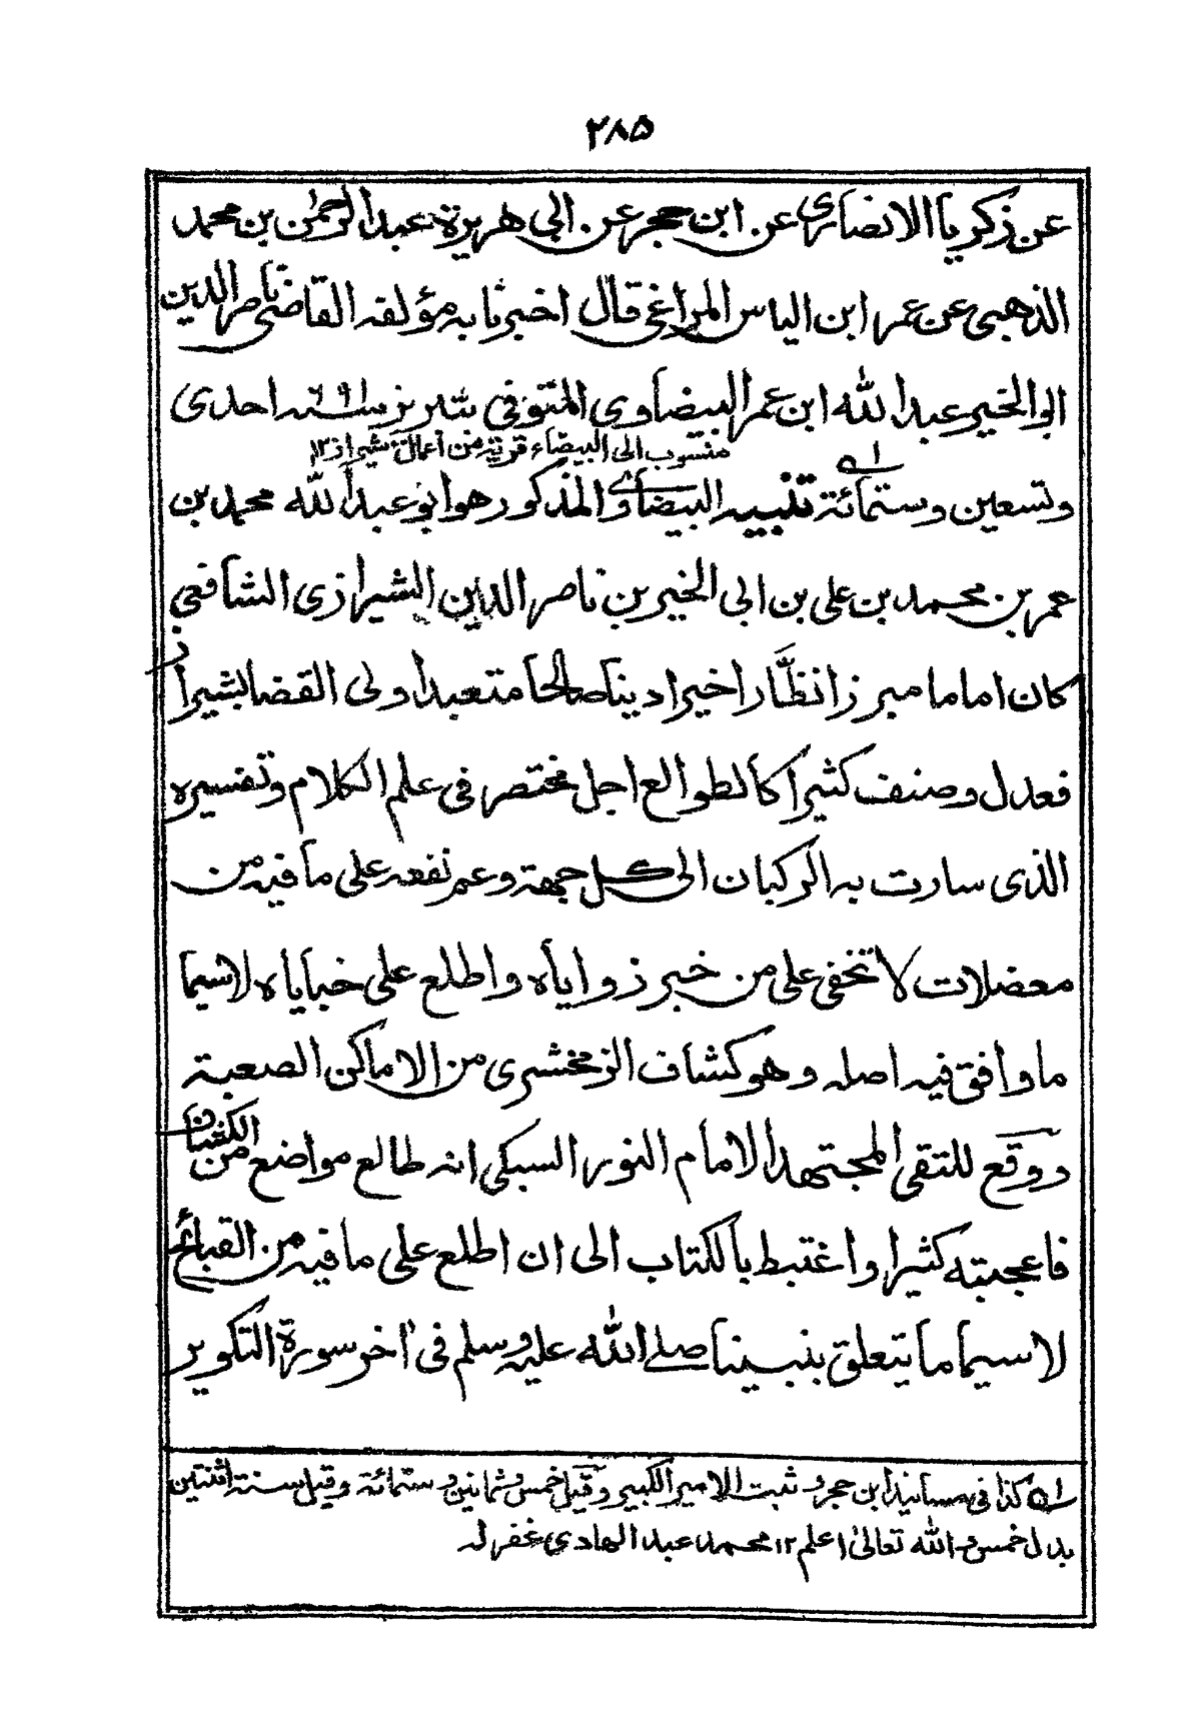 ٢٨٥
عن زكريا الانصاری عن ابن حجر عن ابی هريرة عبد الرحمٰن بن محمد
الذهبی عن عمر ابن الياس المراغی قال اخبرنا به مؤلفه القاضی ناصر الدين
ابو الخير عبد الله ابن عمر البيضاوی المتوفی بتبريز سنه ٦٩١ احدی
منسوب الی البيضاء قرية من اعمال شيراز ١٢
وتسعين وستمائة تنبيه البيضاوی المذكور هو ابو عبد الله محمد بن
عمر بن محمد بن علی بن ابی الخير بن ناصر الدين الشيرازی الشافعی
كان اماما مبرزا نظَّارا خيرا دينا صالحا متعبدا ولی القضا بشيراز
فعدل وصنف كثيرا كالطوالع اجل مختصر فی علم الكلام وتفسيره
الذی سارت به الركبان الی كل جهة وعم نفعه علی ما فيه من
معضلات لا تخفی علی من خبر زواياه واطلع علی خباياه لاسيما
ما وافق فيه اصله وهو كشاف الزمخشری من الاماكن الصعبة
ووقع للتقی المجتهد الامام النور السبكی انه طالع مواضع من الكشاف
فاعجبته كثيرا واغتبط بالكتاب الی ان اطلع علی ما فيه من القبائح
لاسيما ما يتعلق بنبينا صلے الله عليه وسلم فی اٰخر سورة التكوير
١ه كذا فی مسانيد ابن حجر وثبت الامير الكبير وقيل خمس وثمانين وستمائة وقيل سنة اثنتين
بدل خمس والله تعالیٰ اعلم ١٢ محمد عبد الهادی غفر له